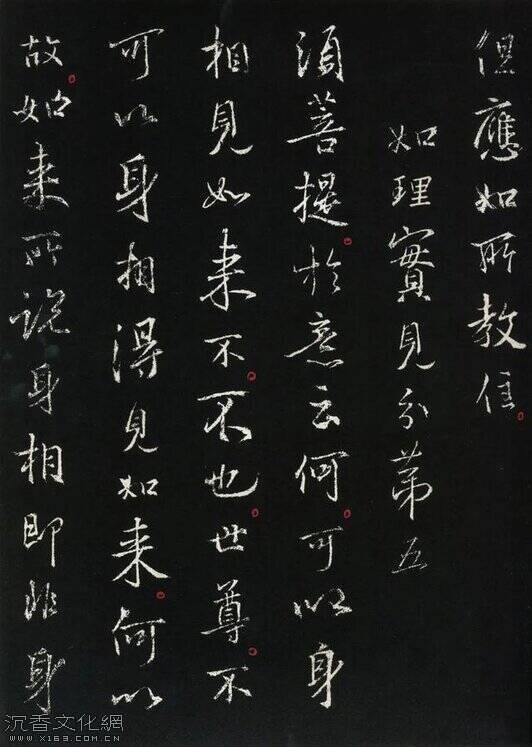 但應如所教住。
如理實見分第五
須菩提。於意云何。可以身
相見如来不。不也。世尊。不
可以身相得見如来。何以
故。如来所説身相即非身
沉香文化網
WWW.X169.COM.CN